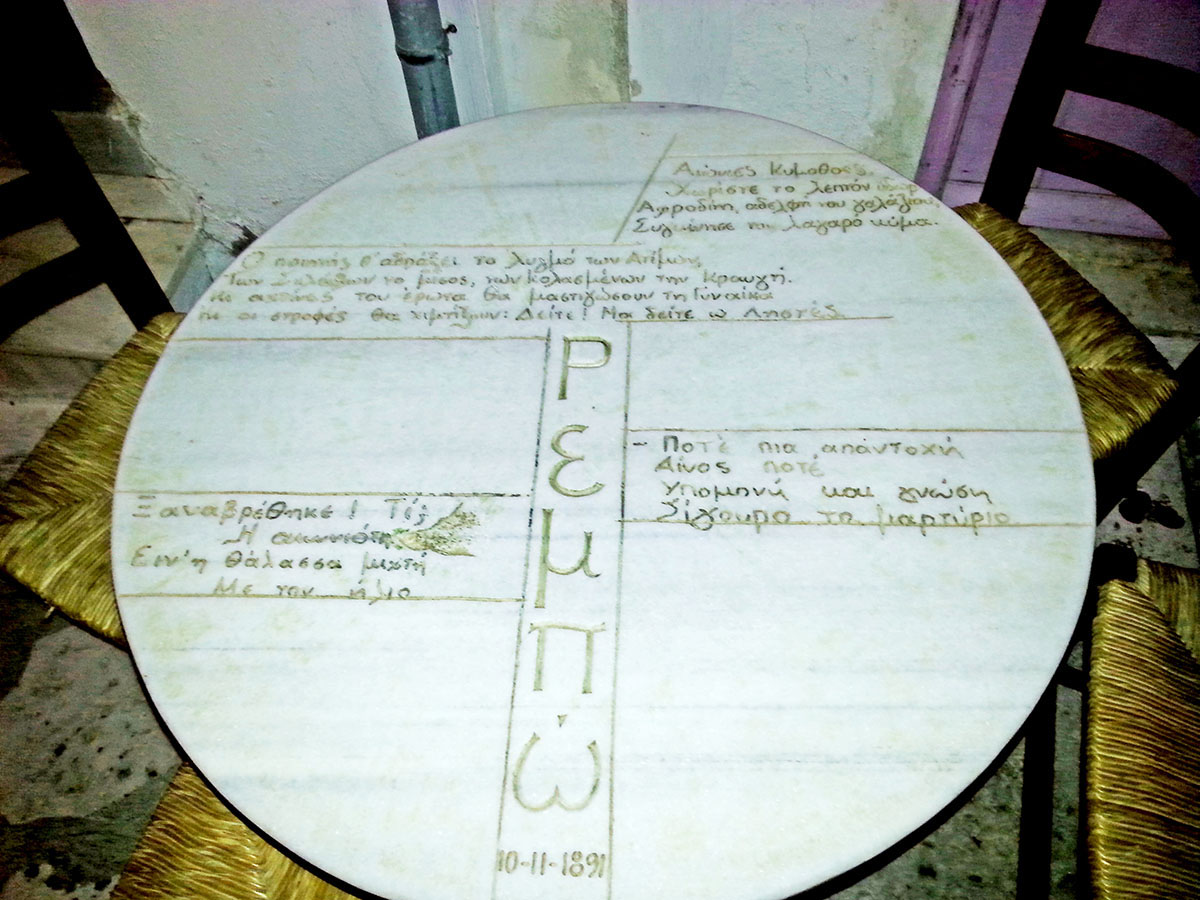 Αιώνιες Κυμοθόες,
Χωρίστε το λεπτόν
Αφροδίτη, αδελφή του γαλάζιου,
Συγκίνησε το λαγαρό κύμα.
Ο ποιητής θ' αδράξει το λυγμό των Ατίμων,
Των Σκλάβων το μίσος, των κολασμένων την Κραυγή.
Κι αχτίνες του έρωτα θα μαστιγώσουν τη Γυναίκα
κι οι στροφές θα χιμήξουν: Δείτε! Μα δείτε ω Ληστές
Ρεμπώ
- Ποτέ πια απαντοχή
Αίνος ποτέ
Υπομονή και γνώση
Σίγουρο το μαρτύριο
Ξαναβρέθηκε! Τί;
Η αιωνιότη
Ειν' η θάλασσα μιχτή
Με τον ήλιο
10-11-1891